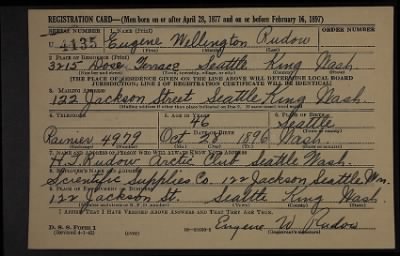 REGISTRATION CARD—(Men born on or after April 28, 1877 and on or before February 16, 1897)
SERIAL NUMBER 1. NAME (Print) ORDER NUMBER
U 4135 Eugene Wellington Rudow
(First) (Middle) (Last)
2. PLACE OF RESIDENCE (Print)
3215 Dose Terrace Seattle King Wash.
(Number and street) (Town, township, village, or city) (County) (State)
[THE PLACE OF RESIDENCE GIVEN ON THE LINE ABOVE WILL DETERMINE LOCAL BOARD
JURISDICTION; LINE 2 OF REGISTRATION CERTIFICATE WILL BE IDENTICAL]
3. MAILING ADDRESS
122 Jackson Street Seattle King Wash.
[Mailing address if other than place indicated on line 2. If same insert word same]
4. TELEPHONE 5. AGE IN YEARS 6. PLACE OF BIRTH
46 Seattle
DATE OF BIRTH (Town or county)
Rainier 4979 Oct 1896 Wash
7. NAME AND ADDRESS OF PERSON WHO WILL ALWAYS KNOW YOUR ADDRESS
Rudow Arctic Club Seattle Wash.
8. EMPLOYER'S NAME AND ADDRESS
Scientific Supplies Co. 122 Jackson Seattle Wn.
9. PLACE OF EMPLOYMENT OR BUSINESS
122 Jackson St. Seattle King Wash.
(Number and street or R. F. D. number) (Town) (County) (State)
I AFFIRM THAT I HAVE VERIFIED ABOVE ANSWERS AND THAT THEY ARE TRUE.
D. S. S. Form 1
Eugene W. Rudow
(Registrant's signature)